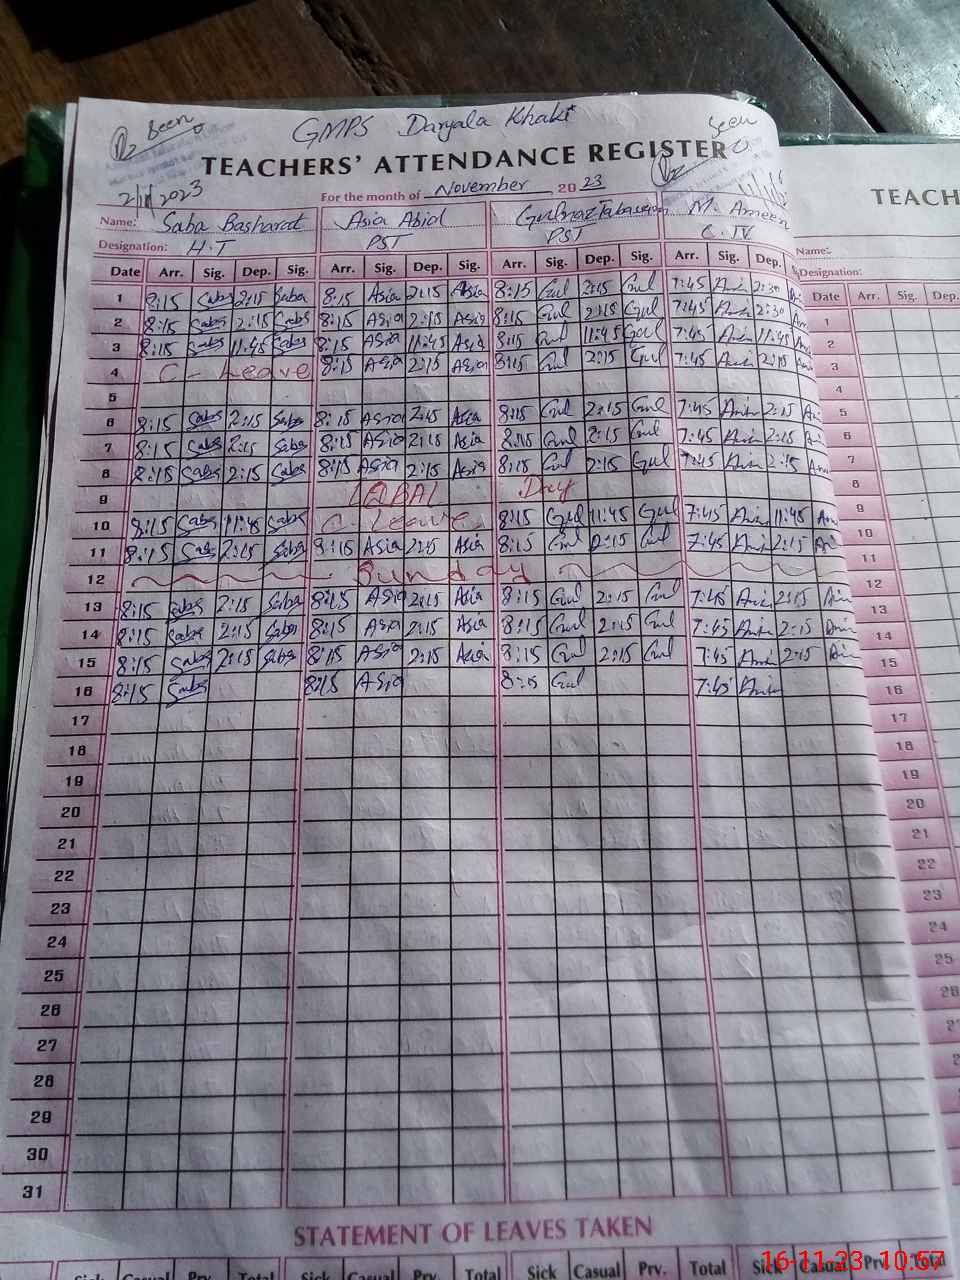 Seen
GMPS Daryala Khaki
Seen
TEACHERS' ATTENDANCE REGISTER
TEACH
2/11/2023
For the month of November 2023
Name: Saba Basharat Asia Abid Gulnaz Tabassum M. Ameen
Name:
Designation: H.T PST PST C.IV
Designation:
Date Arr. Sig. Dep. Sig. Arr. Sig. Dep. Sig. Arr. Sig. Dep. Sig. Arr. Sig. Dep.
Date Arr. Sig. Dep.
1 8:15 Saba 2:15 Saba 8:15 Asia 2:15 Asia 8:15 Gul 2:15 Gul 7:45 Amin 2:30
2 8:15 Saba 2:15 Saba 8:15 Asia 2:15 Asia 8:15 Gul 2:15 Gul 7:45 Amin 2:30
3 8:15 Saba 11:45 Saba 8:15 Asia 11:45 Asia 8:15 Gul 11:45 Gul 7:45 Amin 11:45
4 C- Leave 8:15 Asia 2:15 Asia 8:15 Gul 2:15 Gul 7:45 Amin 2:15
5
6 8:15 Saba 2:15 Saba 8:15 Asia 2:15 Asia 8:15 Gul 2:15 Gul 7:45 Amin 2:15
7 8:15 Saba 2:15 Saba 8:15 Asia 2:15 Asia 8:15 Gul 2:15 Gul 7:45 Amin 2:15
8 8:15 Saba 2:15 Saba 8:15 Asia 2:15 Asia 8:15 Gul 2:15 Gul 7:45 Amin 2:15
9 IQBAL Day
10 8:15 Saba 11:45 Saba C- Leave 8:15 Gul 11:45 Gul 7:45 Amin 11:45
11 8:15 Saba 2:15 Saba 8:15 Asia 2:15 Asia 8:15 Gul 2:15 Gul 7:45 Amin 2:15
12 Sunday
13 8:15 Saba 2:15 Saba 8:15 Asia 2:15 Asia 8:15 Gul 2:15 Gul 7:45 Amin 2:15
14 8:15 Saba 2:15 Saba 8:15 Asia 2:15 Asia 8:15 Gul 2:15 Gul 7:45 Amin 2:15
15 8:15 Saba 2:15 Saba 8:15 Asia 2:15 Asia 8:15 Gul 2:15 Gul 7:45 Amin 2:15
16 8:15 Saba 8:15 Asia 8:15 Gul 7:45 Amin
17
18
19
20
21
22
23
24
25
26
27
28
29
30
31
1
2
3
4
5
6
7
8
9
10
11
12
13
14
15
16
17
18
19
20
21
22
23
24
25
26
STATEMENT OF LEAVES TAKEN
Sick Casual Prv. Total Sick Casual Prv. Total Sick Casual Prv. Total Sick Casual Prv. Total
16-11-23 10:57